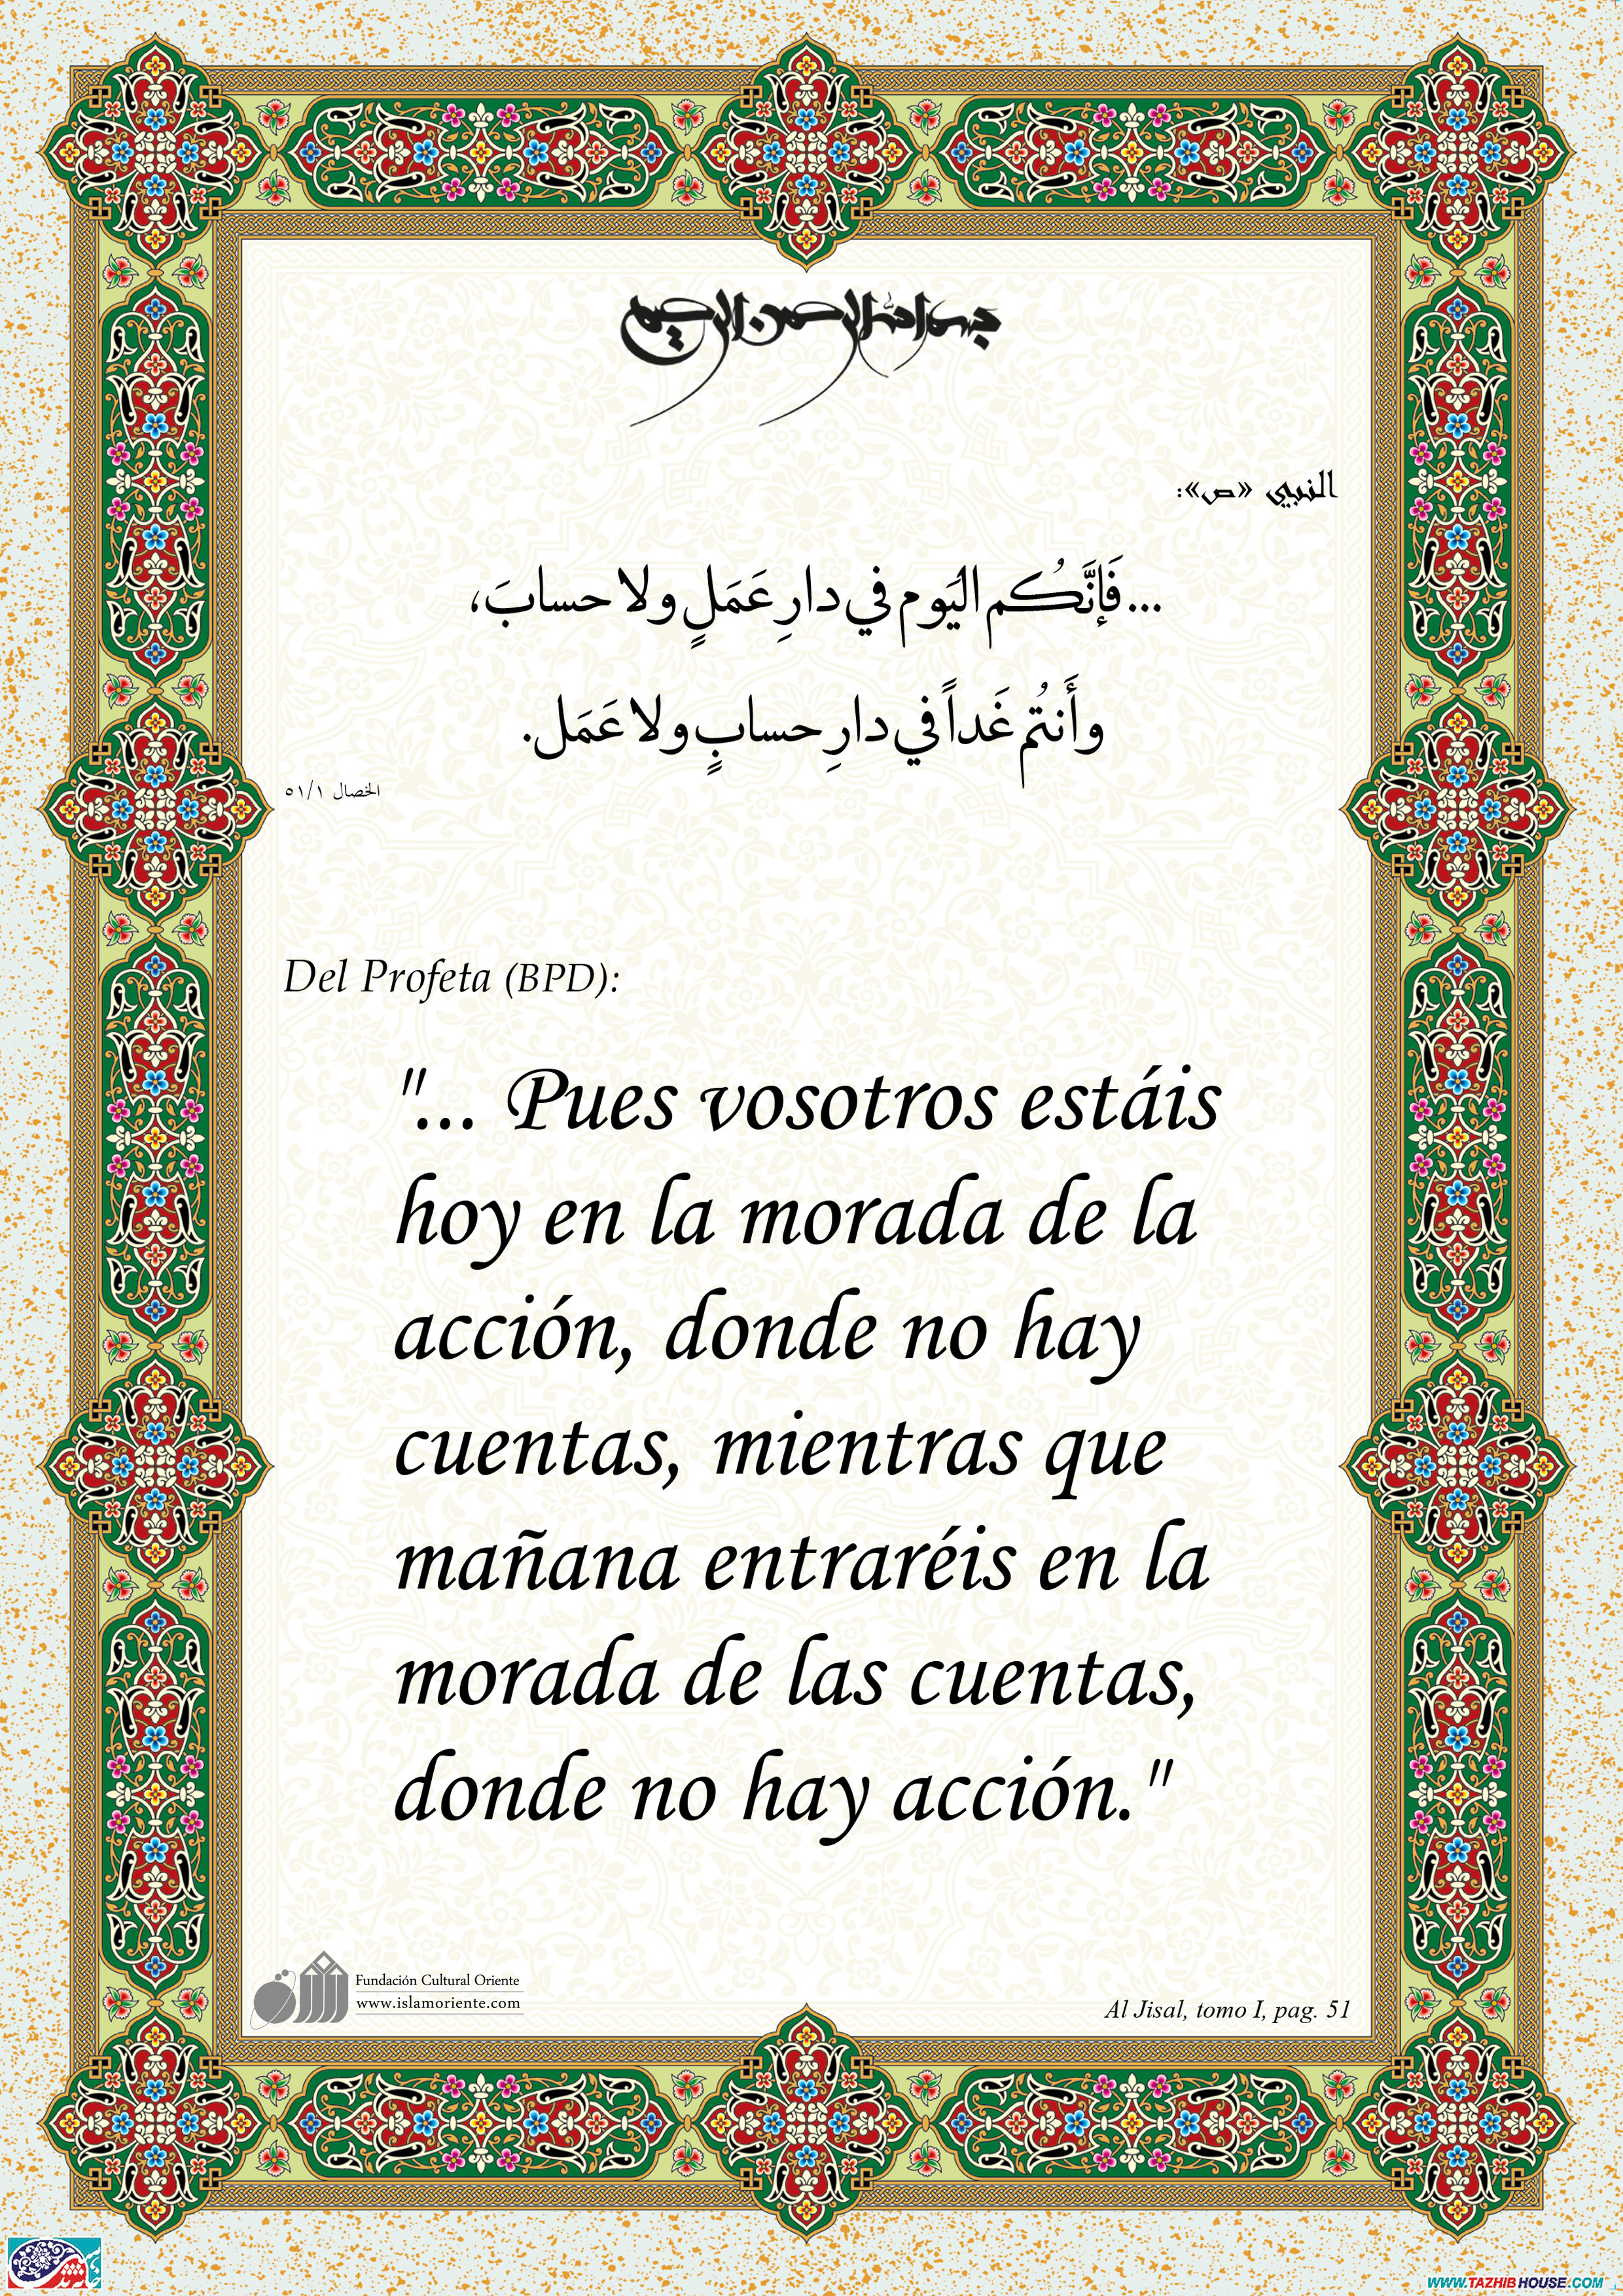 بسم الله الرحمن الرحيم
النبي «ص»:
...فَإنَّكُم اليَوم في دارِ عَمَلٍ ولا حسابَ،
وأَنتُم غَداً في دارِ حسابٍ ولا عَمَل.
الخصال ٥١/١
Del Profeta (BPD):
"... Pues vosotros estáis
hoy en la morada de la
acción, donde no hay
cuentas, mientras que
mañana entraréis en la
morada de las cuentas,
donde no hay acción."
Fundación Cultural Oriente
www.islamoriente.com
Al Jisal, tomo I, pag. 51
WWW.TAZHIBHOUSE.COM